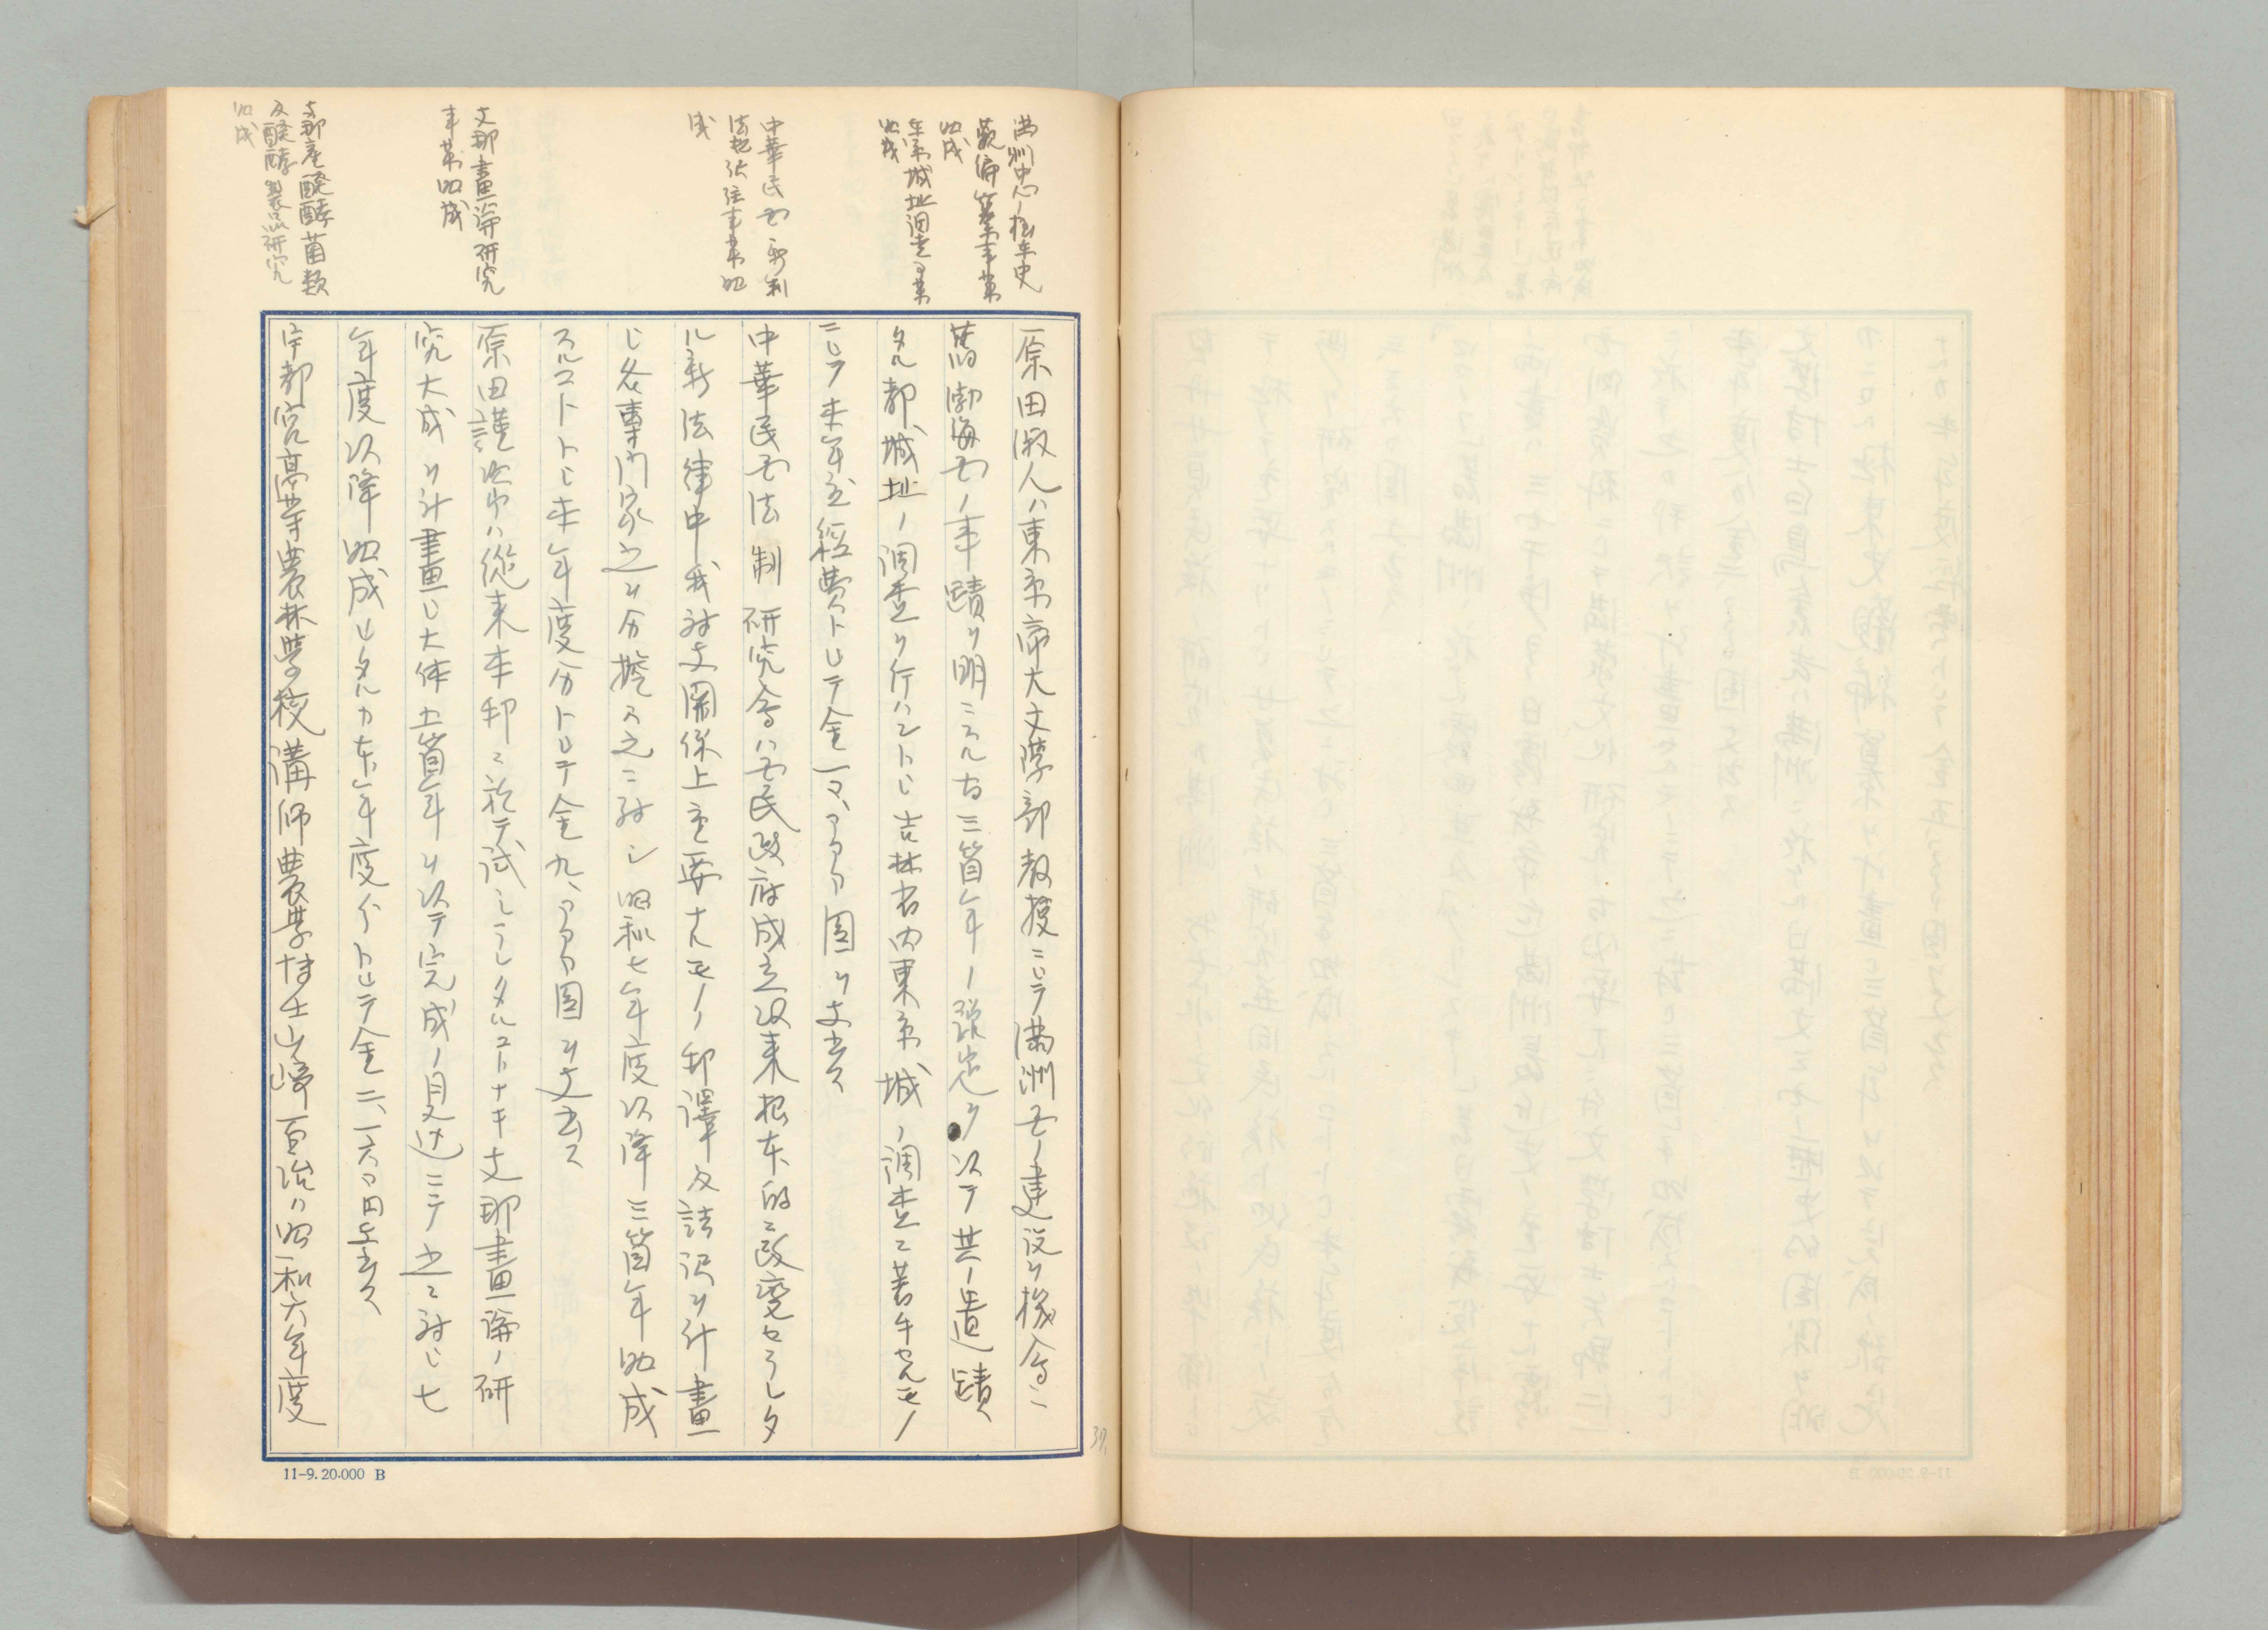 満洲中心ノ極東史
概観編纂事業
助成
東京城址調査事業
助成
中華民国ノ新刑
法
成
支那畫論研究
事業助成
支那産醗酵菌類
及醗酵製品研究
助成
原田淑人ハ東京帝大文学部教授ニシテ満洲国ノ建設ヲ機会ニ
舊渤海国ノ事蹟ヲ明ニスル為三箇年ノ豫定ヲ以テ其ノ遺蹟
タル都城址ノ調査ヲ行ハントシ吉林省内東京城ノ調査ニ著手セルモノ
ニシテ本年度経費トシテ金一〇、〇〇〇圓ヲ支出ス
中華民国法制研究会ハ国民政府成立以来根本的ニ改変セラレタ
ル新法律中我対支関係上重要ナルモノノ邦譯及註訳ヲ計畫
シ各専門家之ヲ分擔ス之ニ対シ昭和七年度以降三箇年助成
スルコトトシ本年度分トシテ金九、〇〇〇圓ヲ支出ス
原田謹次郎ハ従来本邦ニ於テ試ミラレタルコトナキ支那畫論ノ研
究大成ヲ計畫シ大体五箇年ヲ以テ完成ノ見込ニテ之ニ対シ七
年度以降助成シタルカ本年度分トシテ金二、一六〇円支出ス
宇都宮高等農林学校講師農学博士山崎百治ハ昭和六年度
39.
11-9.20.000 B